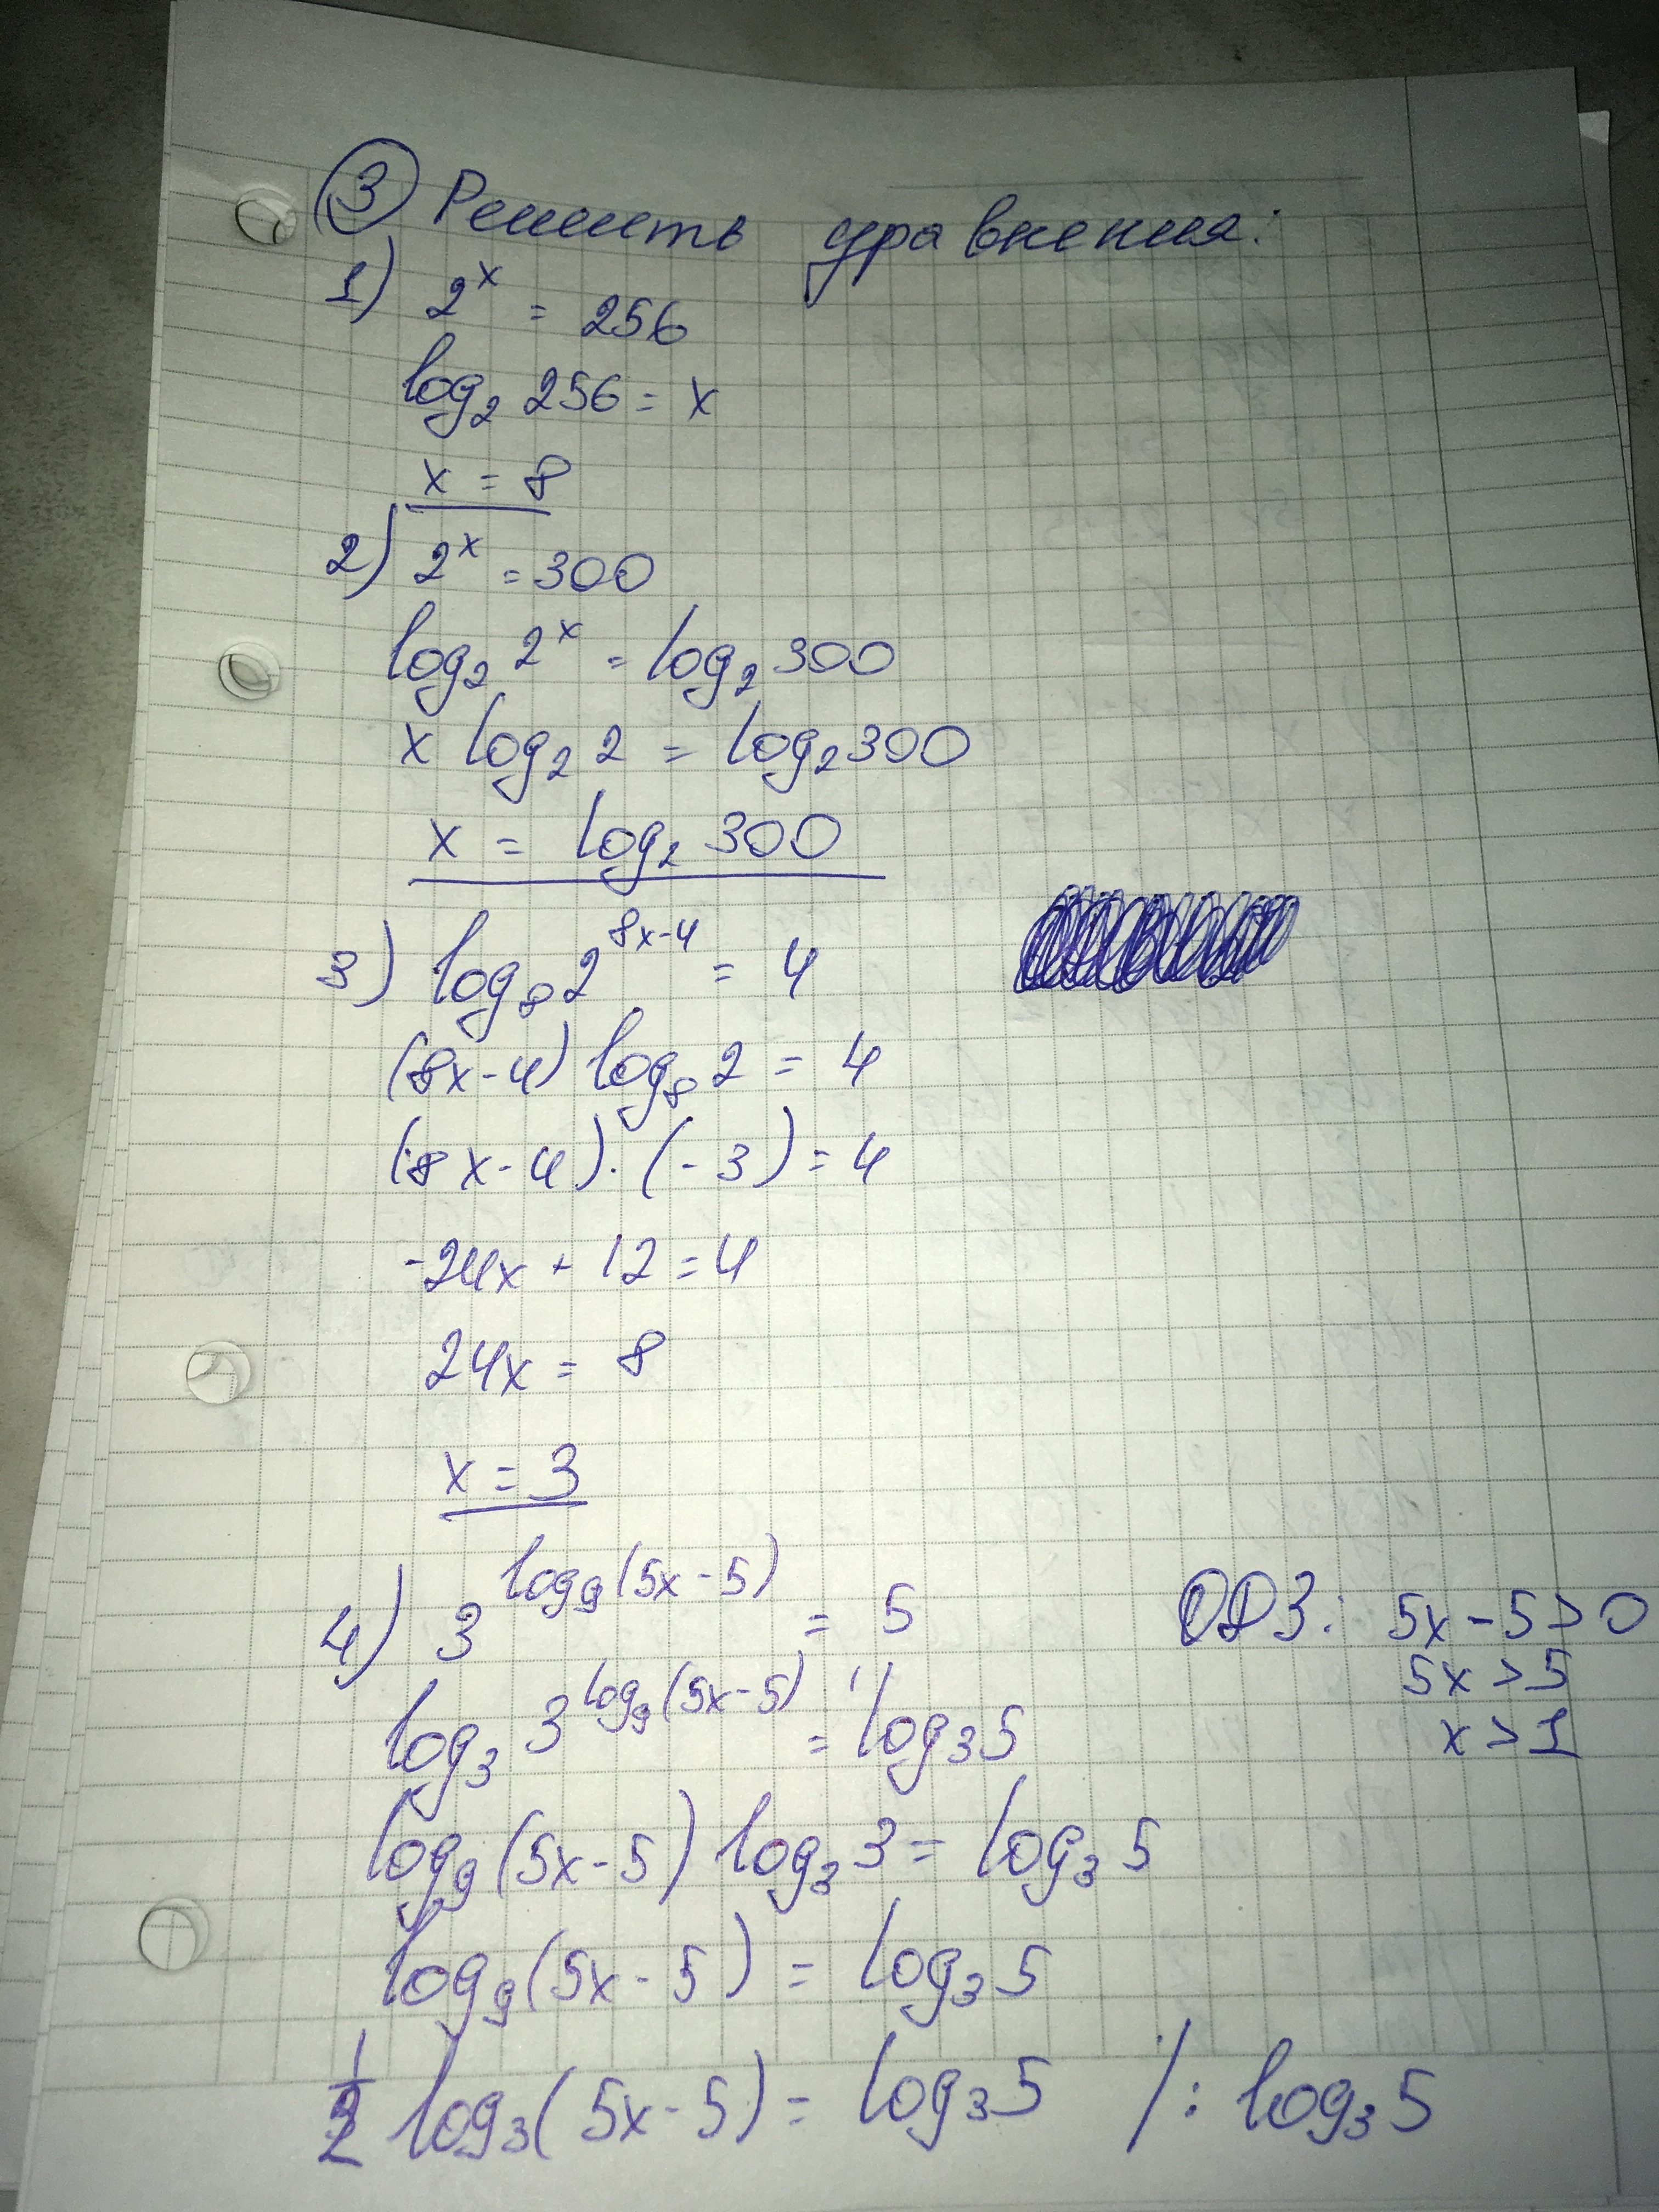 ③ Решить уравнения:
1) 2^x = 256
log₂ 256 = x
x = 8
2) 2^x = 300
log₂ 2^x = log₂ 300
x log₂ 2 = log₂ 300
x = log₂ 300
3) log₈ 2^(8x-4) = 4
(8x-4) log₈ 2 = 4
(8x-4)·(-3) = 4
-24x + 12 = 4
24x = 8
x = 3
4) 3^(log₉(5x-5)) = 5
ОДЗ: 5x-5>0
5x>5
x>1
log₃ 3^(log₉(5x-5)) = log₃ 5
log₉(5x-5) log₃ 3 = log₃ 5
log₉(5x-5) = log₃ 5
1/2 log₃(5x-5) = log₃ 5 /: log₃ 5